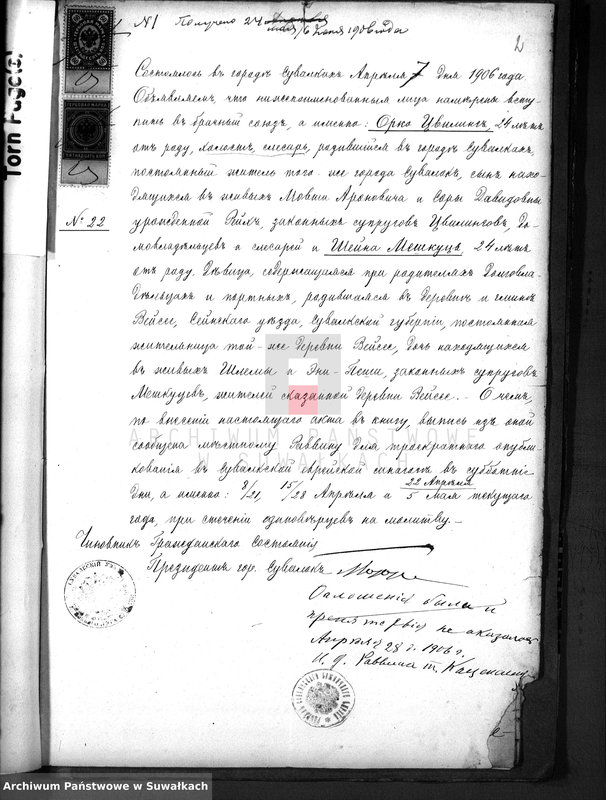 Torn Page(s)
№ 1 Получено 24 мая/6 июня 1906 года
2
Состоялось въ городѣ Сувалкахъ Апрѣля 7 дня 1906 года
Объявляемъ, что нижепоименованныя лица намѣрены всту-
пить въ брачный союзъ, а именно: Орко Цвилингъ, 24 лѣтъ
отъ роду, холостъ, слесарь, родившійся въ городѣ Сувалкахъ,
постоянный житель того-же города Сувалокъ, сынъ нахо-
дящихся въ живыхъ Мовши Ароновича и Соры Давидовны
№ 22
урожденной законныхъ супруговъ Цвилинговъ, до-
мовладѣльцевъ и слесарей и Шейна Мешкуцъ, 24 лѣтъ
отъ роду. Дѣвица, содержащаяся при родителяхъ домовла-
дѣльцахъ и портныхъ, родившаяся въ деревнѣ и гминѣ
Вейсее, Сейнскаго уѣзда, Сувалкской губерніи, постоянная
жительница той-же деревни Вейсее, дочь находящихся
въ живыхъ Шлемы и Эни-Песши, законныхъ супруговъ
Мешкуцевъ, жителей сказанной деревни Вейсее. - О чемъ,
по внесеніи настоящаго акта въ книгу, выпись изъ оной
сообщена мѣстному Раввину для троекратнаго опубли-
кованія въ Сувалкской еврейской синагогѣ въ субботніе
дни, а именно: 8/21, 15/28 Апрѣля и 22 Апрѣля/5 Мая текущаго
года, при стеченіи единовѣрцевъ на молитву. -
Чиновникъ Гражданскаго Состоянія
Президентъ гор. Сувалокъ
Оглошенія были и
препятствія не оказалось
Апрѣля 28 г. 1906 г.
И. д. Раввина
ARCHIWUM PAŃSTWOWE
W SUWAŁKACH
Archiwum Państwowe w Suwałkach